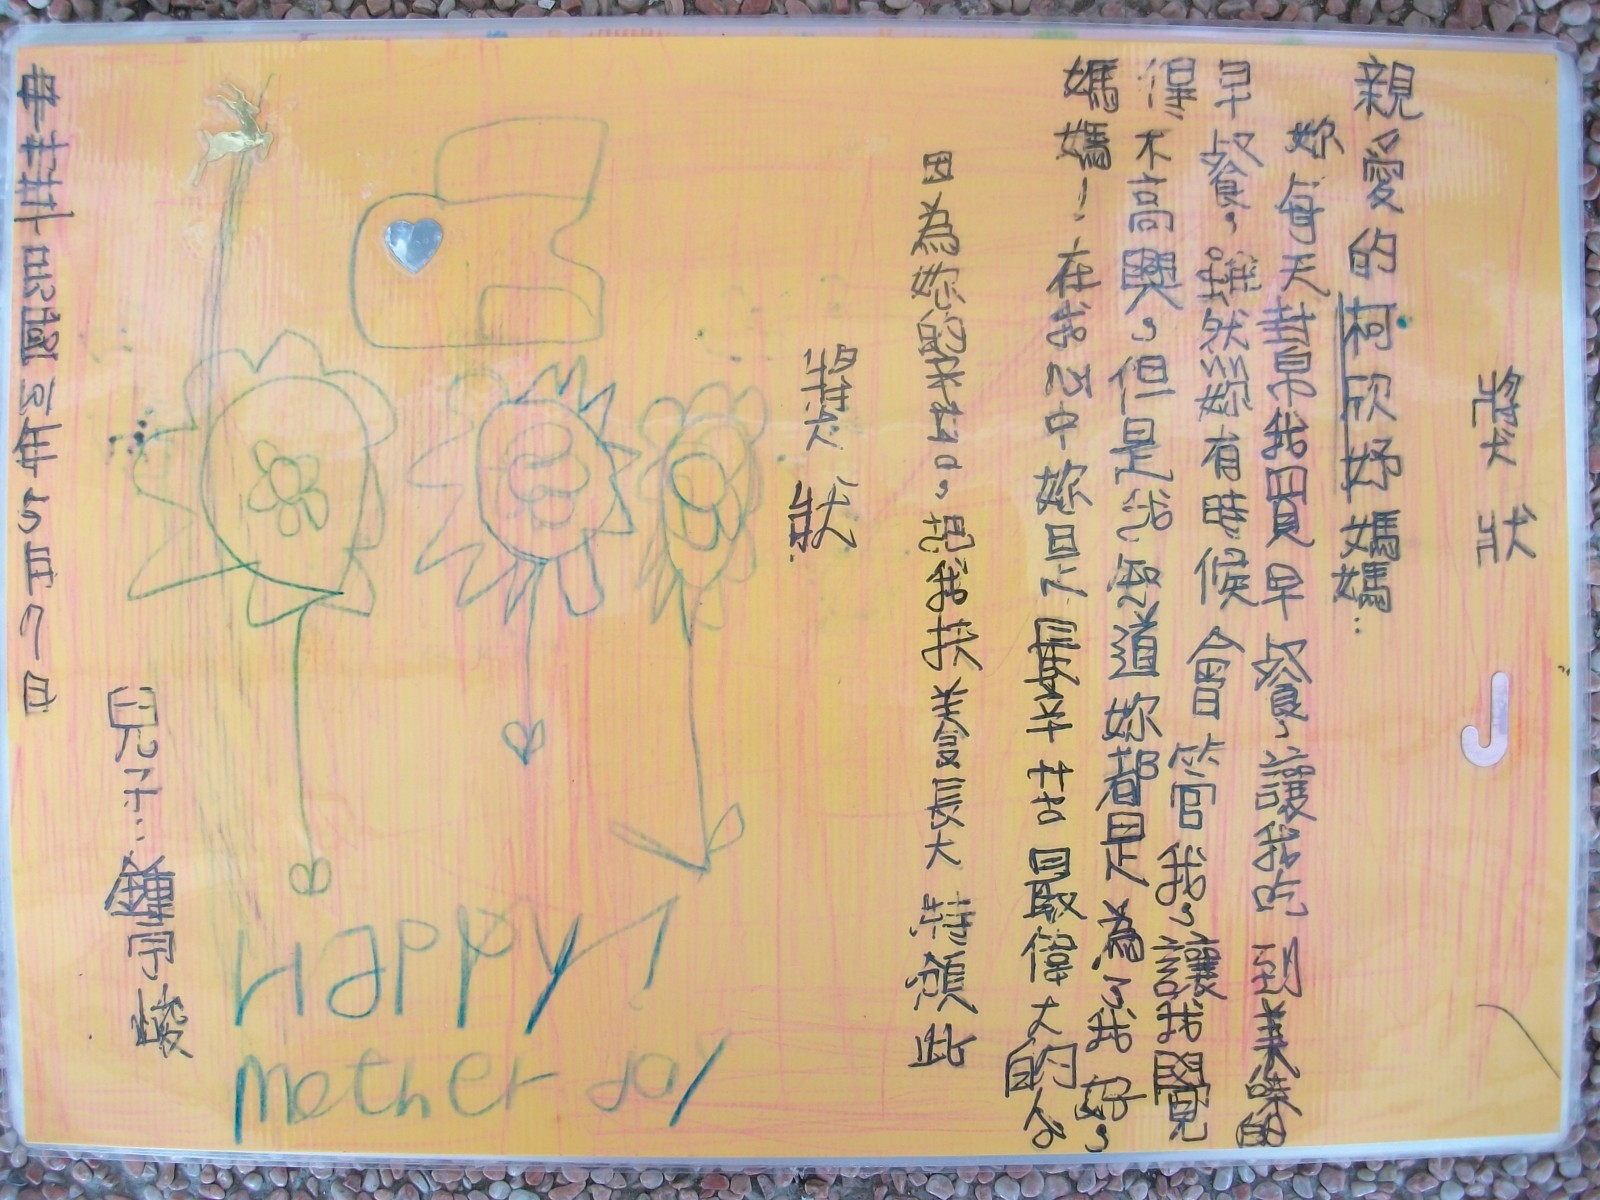 獎狀
親愛的柯欣妤媽媽：
妳每天幫我買早餐，讓我吃到美味的
早餐，雖然妳有時候會管我，讓我覺
得不高興，但是我知道妳都是為了我好，
媽媽！在我心中妳是最辛苦最偉大的人。
因為妳的辛苦，把我扶養長大 特頒此
獎狀
Happy!
mother day
兒子：鍾 峻
中華民國 年5月7日